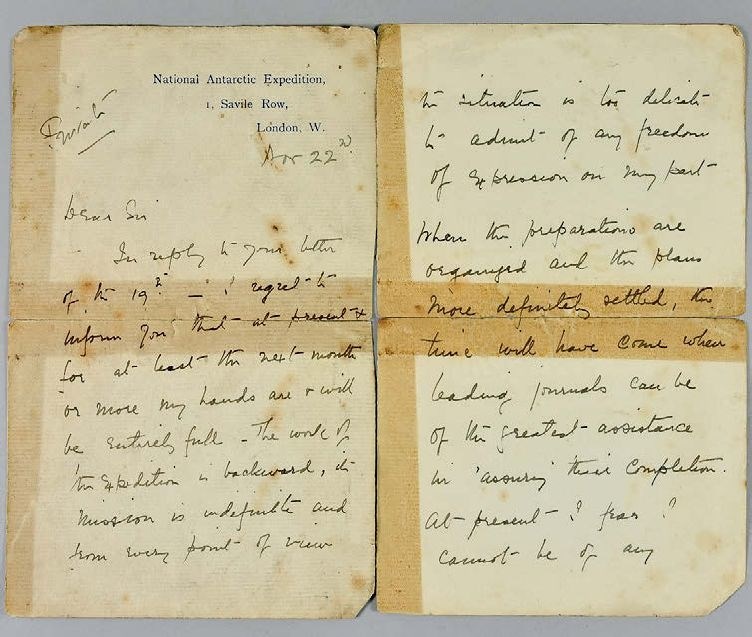 National Antarctic Expedition,
1, Savile Row,
London, W.
Private
Nov 22d
Dear Sir
In reply to your letter
of the 19th – I regret to
inform you that at present &
for at least the next month
or more my hands are & will
be entirely full – The work of
the Expedition is backward, its
mission is indefinite and
from every point of view
the situation is too delicate
to admit of any freedom
of expression on my part
When the preparations are
organized and the plans
more definitely settled, the
time will have come when
leading journals can be
of the greatest assistance
in assuring their completion.
At present I fear I
cannot be of any